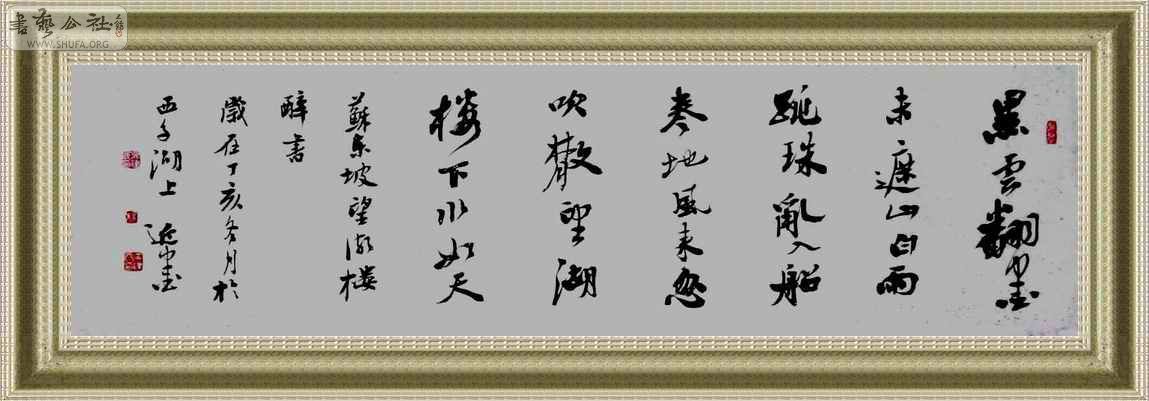 書藝公社
WWW.SHUFA.ORG
黑雲翻墨
未遮山白雨
跳珠亂入船
卷地風来忽
吹散望湖
楼下水如天
蘇東坡望湖楼
醉書
歲在丁亥冬月於
西子湖上 近墨